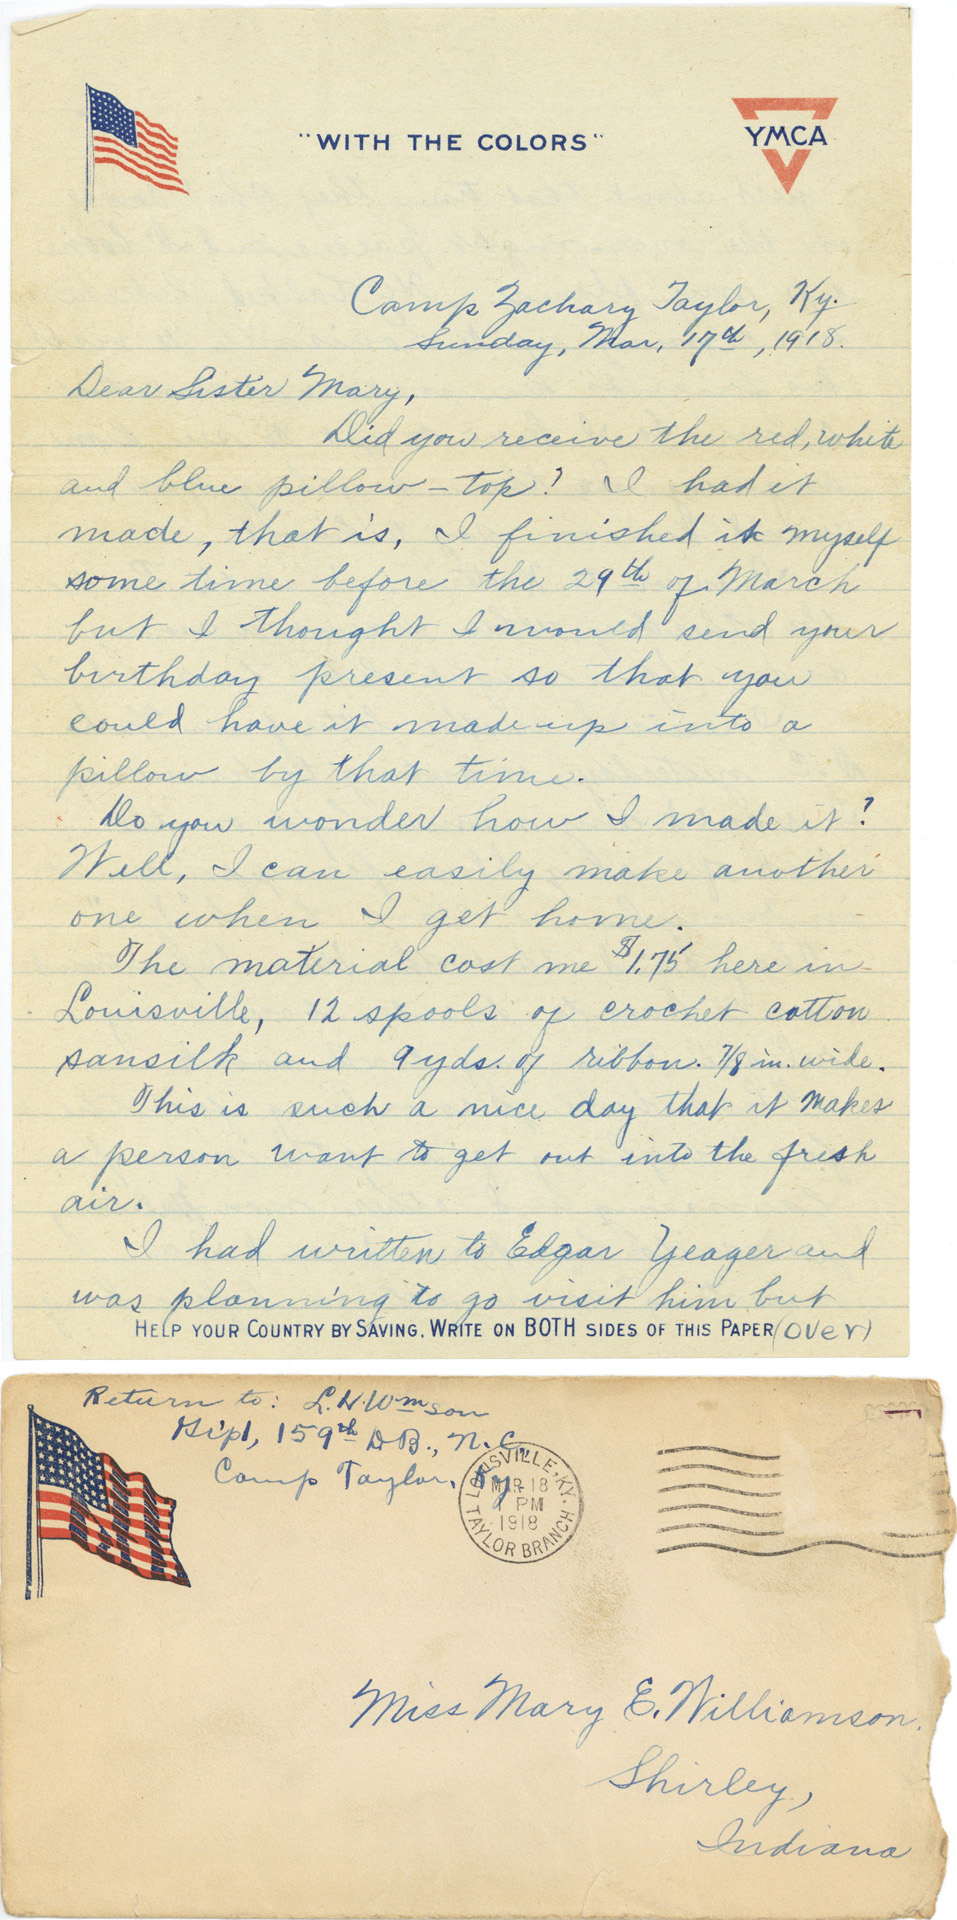 "WITH THE COLORS"
YMCA
Camp Zachary Taylor, Ky.
Sunday, Mar. 17th, 1918.
Dear Sister Mary,
Did you receive the red, white
and blue pillow-top? I had it
made, that is, I finished it myself
some time before the 29th of March
but I thought I would send your
birthday present so that you
could have it made up into a
pillow by that time.
Do you wonder how I made it?
Well, I can easily make another
one when I get home.
The material cost me $1.75 here in
Louisville, 12 spools of crochet cotton
sansilk and 9 yds. of ribbon. 7/8 in. wide.
This is such a nice day that it makes
a person want to get out into the fresh
air.
I had written to Edgar Yeager and
was planning to go visit him but
HELP YOUR COUNTRY BY SAVING. WRITE ON BOTH SIDES OF THIS PAPER (over)
Return to: L.H. Wmson
159th D.B., N.C.
Camp Taylor, Ky.
LOUISVILLE, KY.
MAR 18
1 PM
1918
TAYLOR BRANCH
Miss Mary E. Williamson.
Shirley,
Indiana